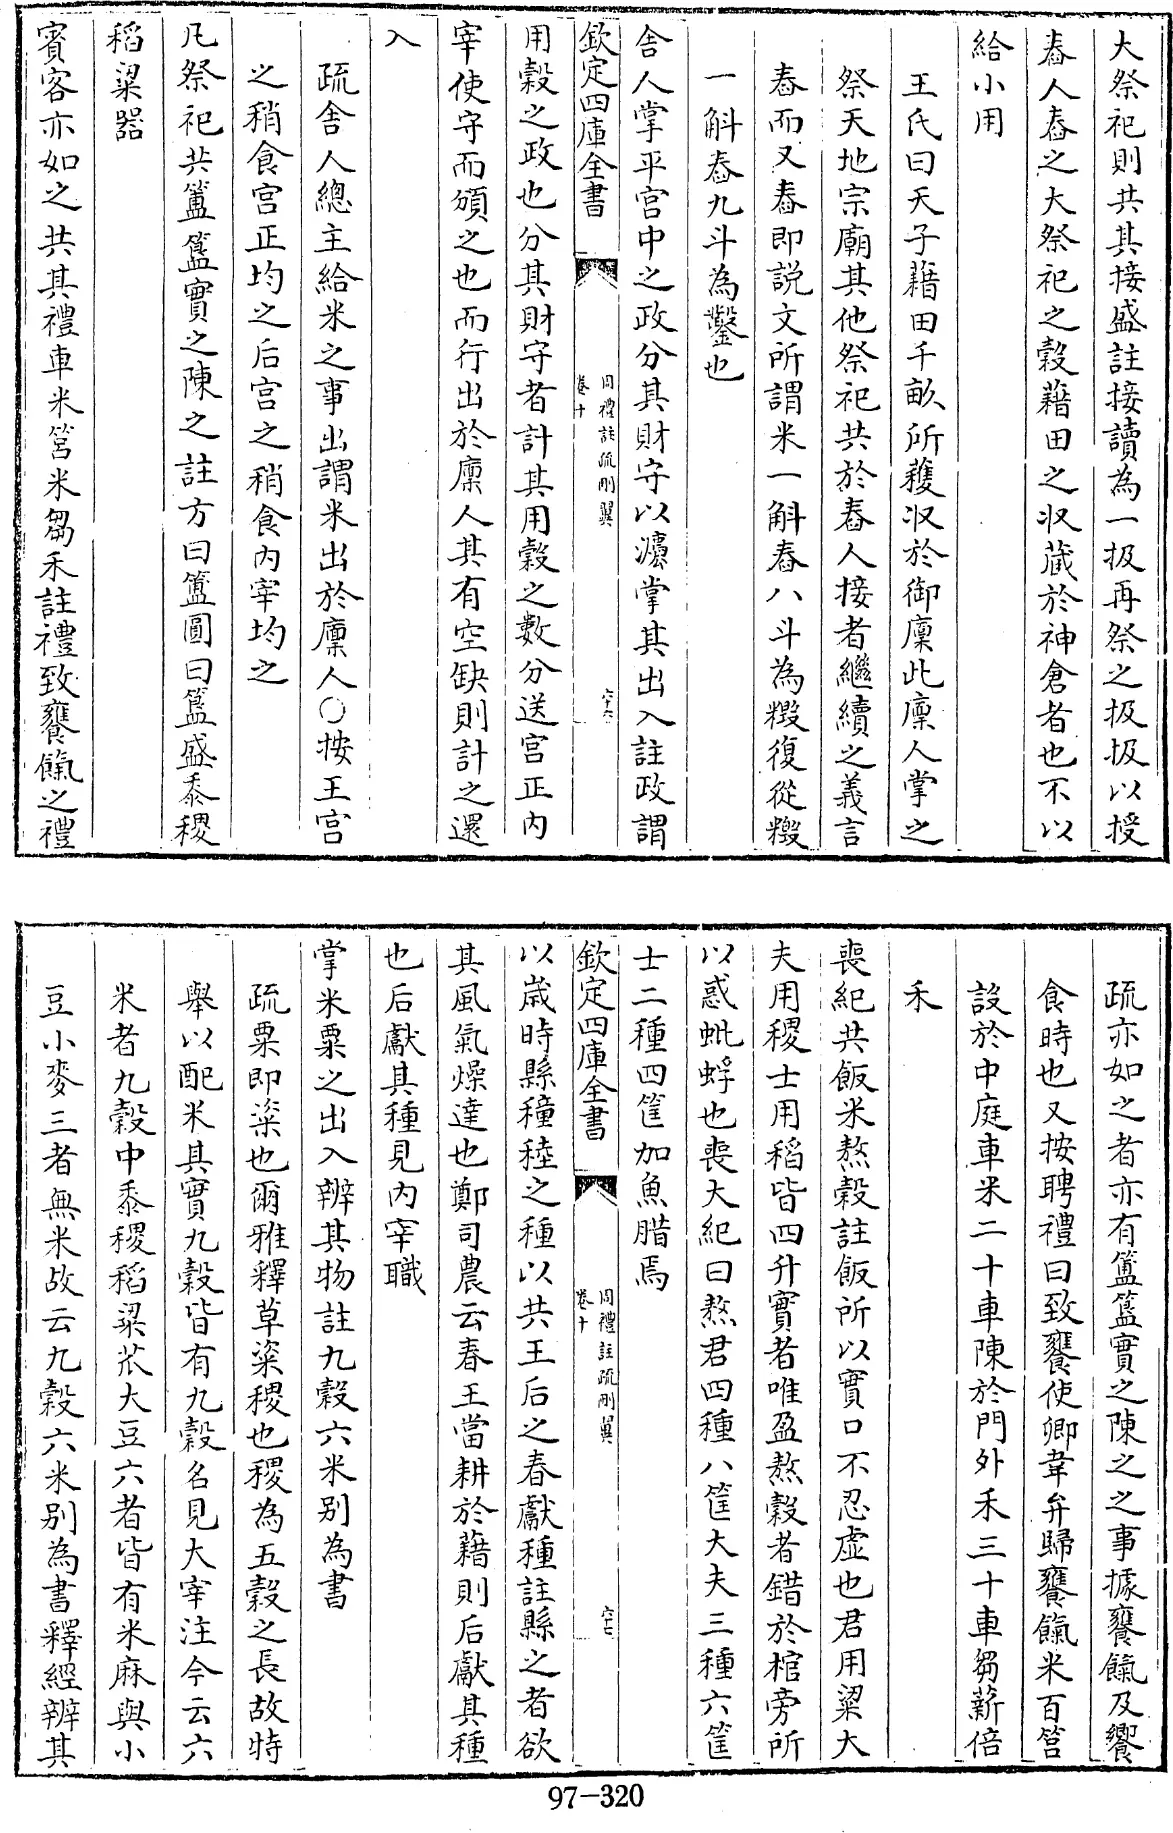 大祭祀則共其接盛註接讀為一扱再祭之扱扱以授
舂人舂之大祭祀之穀藉田之収藏於神倉者也不以
給小用
王氏曰天子藉田千畝所穫収於御廩此廩人掌之
祭天地宗廟其他祭祀共於舂人接者繼續之義言
舂而又舂即説文所謂米一斛舂八斗為糳復從糳
一斛舂九斗為鑿也
舍人掌平宫中之政分其財守以灋掌其出入註政謂
欽定四庫全書
周禮註疏刪翼
卷十
六十六
用穀之政也分其財守者計其用穀之數分送宫正内
宰使守而頒之也而行出於廩人其有空缺則計之還
入
疏舍人總主給米之事出謂米出於廩人○按王宫
之稍食宫正均之后宫之稍食内宰均之
凡祭祀共簠簋實之陳之註方曰簠圓曰簋盛黍稷
稻粱器
賓客亦如之共其禮車米筥米芻禾註禮致饔餼之禮
疏亦如之者亦有簠簋實之陳之之事據饔餼及饗
食時也又按聘禮曰致饔使卿韋弁歸饔餼米百筥
設於中庭車米二十車陳於門外禾三十車芻薪倍
禾
喪紀共飯米熬穀註飯所以實口不忍虚也君用粱大
夫用稷士用稻皆四升實者唯盈熬穀者錯於棺旁所
以惑蚍蜉也喪大紀曰熬君四種八筐大夫三種六筐
士二種四筐加魚腊焉
欽定四庫全書
周禮註疏刪翼
卷十
六十七
以歳時縣穜稑之種以共王后之春獻種註縣之者欲
其風氣燥達也鄭司農云春王當耕於藉則后獻其種
也后獻其種見内宰職
掌米粟之出入辨其物註九穀六米别為書
疏粟即粢也爾雅釋草粢稷也稷為五穀之長故特
舉以配米其實九穀皆有九穀名見大宰注今云六
米者九穀中黍稷稻粱苽大豆六者皆有米麻與小
豆小麥三者無米故云九穀六米别為書釋經辨其
97-320